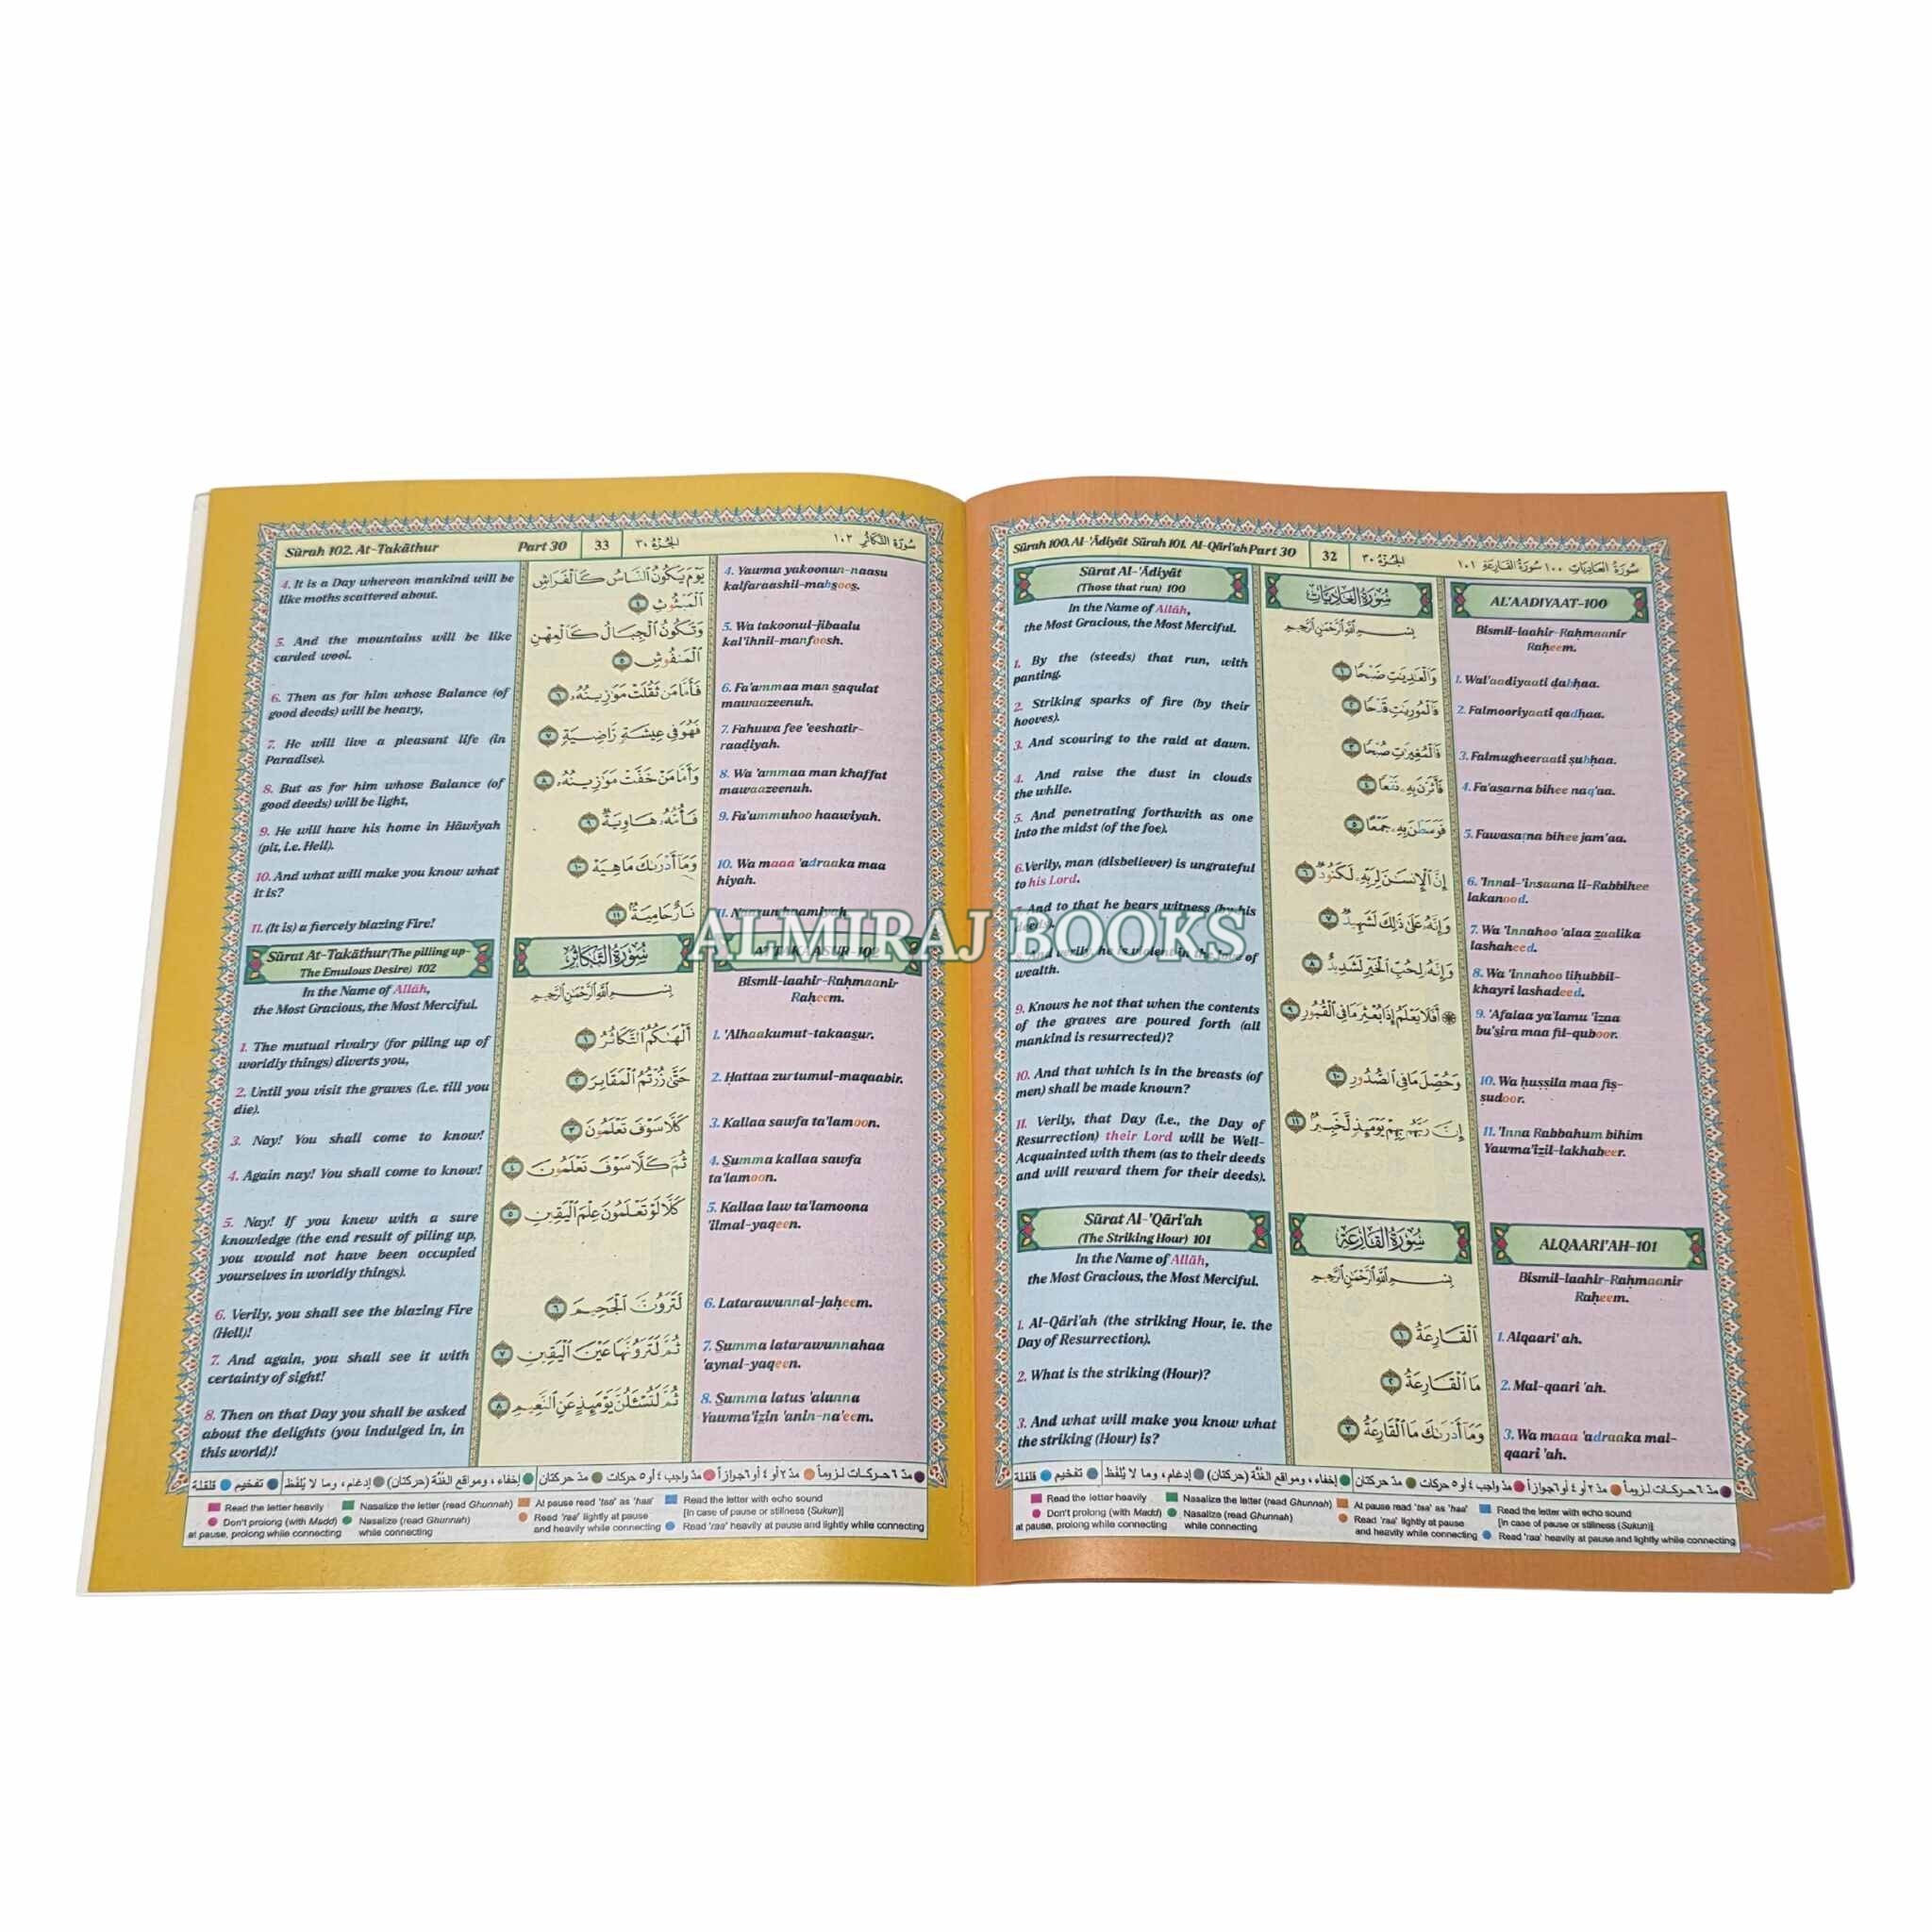 Sûrah 100. Al-'Âdiyât Sûrah 101. Al-Qâri'ah Part 30
32
الجزء ٣٠
سورة العاديات ١٠٠ سورة القارعة ١٠١
Sûrat Al-'Âdiyât
(Those that run) 100
In the Name of Allâh,
the Most Gracious, the Most Merciful.
1. By the (steeds) that run, with
panting.
2. Striking sparks of fire (by their
hooves).
3. And scouring to the raid at dawn.
4. And raise the dust in clouds
the while.
5. And penetrating forthwith as one
into the midst (of the foe).
6. Verily, man (disbeliever) is ungrateful
to his Lord.
And to that he bears witness (by his
deeds).
And verily, he is violent in the love of
wealth.
9. Knows he not that when the contents
of the graves are poured forth (all
mankind is resurrected)?
10. And that which is in the breasts (of
men) shall be made known?
11. Verily, that Day (i.e., the Day of
Resurrection) their Lord will be Well-
Acquainted with them (as to their deeds
and will reward them for their deeds).
Sûrat Al-'Qâri'ah
(The Striking Hour) 101
In the Name of Allâh,
the Most Gracious, the Most Merciful.
1. Al-Qâri'ah (the striking Hour, ie. the
Day of Resurrection).
2. What is the striking (Hour)?
3. And what will make you know what
the striking (Hour) is?
سُورَةُ العَادِيَاتِ
بِسْمِ اللَّهِ الرَّحْمَٰنِ الرَّحِيمِ
وَٱلْعَٰدِيَٰتِ ضَبْحًا ١
فَٱلْمُورِيَٰتِ قَدْحًا ٢
فَٱلْمُغِيرَٰتِ صُبْحًا ٣
فَأَثَرْنَ بِهِۦ نَقْعًا ٤
فَوَسَطْنَ بِهِۦ جَمْعًا ٥
إِنَّ ٱلْإِنسَٰنَ لِرَبِّهِۦ لَكَنُودٌ ٦
وَإِنَّهُۥ عَلَىٰ ذَٰلِكَ لَشَهِيدٌ ٧
وَإِنَّهُۥ لِحُبِّ ٱلْخَيْرِ لَشَدِيدٌ ٨
۞ أَفَلَا يَعْلَمُ إِذَا بُعْثِرَ مَا فِي ٱلْقُبُورِ ٩
وَحُصِّلَ مَا فِي ٱلصُّدُورِ ١٠
إِنَّ رَبَّهُم بِهِمْ يَوْمَئِذٍ لَّخَبِيرٌۢ ١١
سُورَةُ القَارِعَةِ
بِسْمِ اللَّهِ الرَّحْمَٰنِ الرَّحِيمِ
ٱلْقَارِعَةُ ١
مَا ٱلْقَارِعَةُ ٢
وَمَآ أَدْرَىٰكَ مَا ٱلْقَارِعَةُ ٣
AL'AADIYAAT-100
Bismil-laahir-Raḥmaanir
Raḥeem.
1. Wal'aadiyaati ḍabḥaa.
2. Falmooriyaati qadḥaa.
3. Falmugheeraati ṣubḥaa.
4. Fa'asarna bihee naq'aa.
5. Fawasaṭna bihee jam'aa.
6. 'Innal-'insaana li-Rabbihee
lakanood.
7. Wa 'Innahoo 'alaa zaalika
lashaheed.
8. Wa 'Innahoo lihubbil-
khayri lashadeed.
9. 'Afalaa ya'lamu 'izaa
bu'sira maa fil-quboor.
10. Wa ḥuṣṣila maa fiṣ-
ṣudoor.
11. 'Inna Rabbahum bihim
Yawma'izil-lakhabeer.
ALQAARI'AH-101
Bismil-laahir-Raḥmaanir
Raḥeem.
1. Alqaari' ah.
2. Mal-qaari 'ah.
3. Wa maaa 'adraaka mal-
qaari 'ah.
مدّ ٦ حركات لزوماً مدّ ٢ أو ٤ أو ٦ جوازاً مدّ واجب ٤ أو ٥ حركات مدّ حركتان إخفاء، ومواقع الغنّة (حركتان) إدغام، وما لا يُلفظ تفخيم قلقلة
Read the letter heavily
Nasalize the letter (read Ghunnah)
At pause read 'taa' as 'haa'
Read the letter with echo sound
[in case of pause or stillness (Sukun)]
Don't prolong (with Madd)
at pause, prolong while connecting
Nasalize (read Ghunnah)
while connecting
Read 'raa' lightly at pause
and heavily while connecting
Read 'raa' heavily at pause and lightly while connecting
Sûrah 102. At-Takâthur
Part 30
33
الجزء ٣٠
سورة التكاثر ١٠٢
4. It is a Day whereon mankind will be
like moths scattered about.
5. And the mountains will be like
carded wool.
6. Then as for him whose Balance (of
good deeds) will be heavy,
7. He will live a pleasant life (in
Paradise).
8. But as for him whose Balance (of
good deeds) will be light,
9. He will have his home in Hâwiyah
(pit, i.e. Hell).
10. And what will make you know what
it is?
11. (It is) a fiercely blazing Fire!
Sûrat At-Takâthur (The pilling up-
The Emulous Desire) 102
In the Name of Allâh,
the Most Gracious, the Most Merciful.
1. The mutual rivalry (for piling up of
worldly things) diverts you,
2. Until you visit the graves (i.e. till you
die).
3. Nay! You shall come to know!
4. Again nay! You shall come to know!
5. Nay! If you knew with a sure
knowledge (the end result of piling up,
you would not have been occupied
yourselves in worldly things).
6. Verily, you shall see the blazing Fire
(Hell)!
7. And again, you shall see it with
certainty of sight!
8. Then on that Day you shall be asked
about the delights (you indulged in, in
this world)!
يَوْمَ يَكُونُ ٱلنَّاسُ كَٱلْفَرَاشِ
ٱلْمَبْثُوثِ ٤
وَتَكُونُ ٱلْجِبَالُ كَٱلْعِهْنِ
ٱلْمَنفُوشِ ٥
فَأَمَّا مَن ثَقُلَتْ مَوَٰزِينُهُۥ ٦
فَهُوَ فِي عِيشَةٍ رَّاضِيَةٍ ٧
وَأَمَّا مَنْ خَفَّتْ مَوَٰزِينُهُۥ ٨
فَأُمُّهُۥ هَاوِيَةٌ ٩
وَمَآ أَدْرَىٰكَ مَا هِيَهْ ١٠
نَارٌ حَامِيَةٌۢ ١١
سُورَةُ التَّكَاثُرِ
بِسْمِ اللَّهِ الرَّحْمَٰنِ الرَّحِيمِ
أَلْهَىٰكُمُ ٱلتَّكَاثُرُ ١
حَتَّىٰ زُرْتُمُ ٱلْمَقَابِرَ ٢
كَلَّا سَوْفَ تَعْلَمُونَ ٣
ثُمَّ كَلَّا سَوْفَ تَعْلَمُونَ ٤
كَلَّا لَوْ تَعْلَمُونَ عِلْمَ ٱلْيَقِينِ ٥
لَتَرَوُنَّ ٱلْجَحِيمَ ٦
ثُمَّ لَتَرَوُنَّهَا عَيْنَ ٱلْيَقِينِ ٧
ثُمَّ لَتُسْـَٔلُنَّ يَوْمَئِذٍ عَنِ ٱلنَّعِيمِ ٨
4. Yawma yakoonun-naasu
kalfaraashil-mabsoos.
5. Wa takoonul-jibaalu
kal'ihnil-manfoosh.
6. Fa'ammaa man saqulat
mawaazeenuh.
7. Fahuwa fee 'eeshatir-
raaḍiyah.
8. Wa 'ammaa man khaffat
mawaazeenuh.
9. Fa'ummuhoo haawiyah.
10. Wa maaa 'adraaka maa
hiyah.
11. Naarun haamiyah.
AT-TAKAASUR-102
Bismil-laahir-Raḥmaanir
Raḥeem.
1. 'Alhaakumut-takaasur.
2. Ḥattaa zurtumul-maqaabir.
3. Kallaa sawfa ta'lamoon.
4. Summa kallaa sawfa
ta'lamoon.
5. Kallaa law ta'lamoona
'ilmal-yaqeen.
6. Latarawunnal-jaḥeem.
7. Summa latarawunnahaa
'aynal-yaqeen.
8. Summa latus 'alunna
Yawma'izin 'anin-na'eem.
مدّ ٦ حركات لزوماً مدّ ٢ أو ٤ أو ٦ جوازاً مدّ واجب ٤ أو ٥ حركات مدّ حركتان إخفاء، ومواقع الغنّة (حركتان) إدغام، وما لا يُلفظ تفخيم قلقلة
Read the letter heavily
Nasalize the letter (read Ghunnah)
At pause read 'taa' as 'haa'
Read the letter with echo sound
[in case of pause or stillness (Sukun)]
Don't prolong (with Madd)
at pause, prolong while connecting
Nasalize (read Ghunnah)
while connecting
Read 'raa' lightly at pause
and heavily while connecting
Read 'raa' heavily at pause and lightly while connecting
ALMIRAJ BOOKS